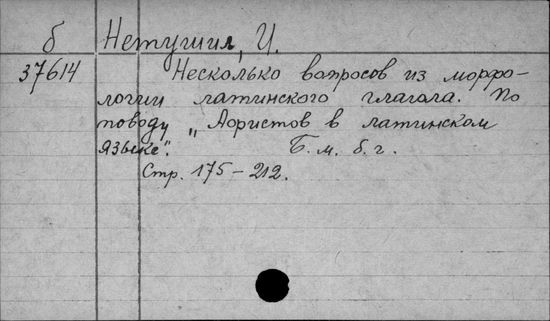 б Нетушил, И.
37614 Несколько вопросов из морфо-
логии латинского глагола. По
поводу „Аористов в латинском
языке". Б. м. б. г.
Стр. 175-212.